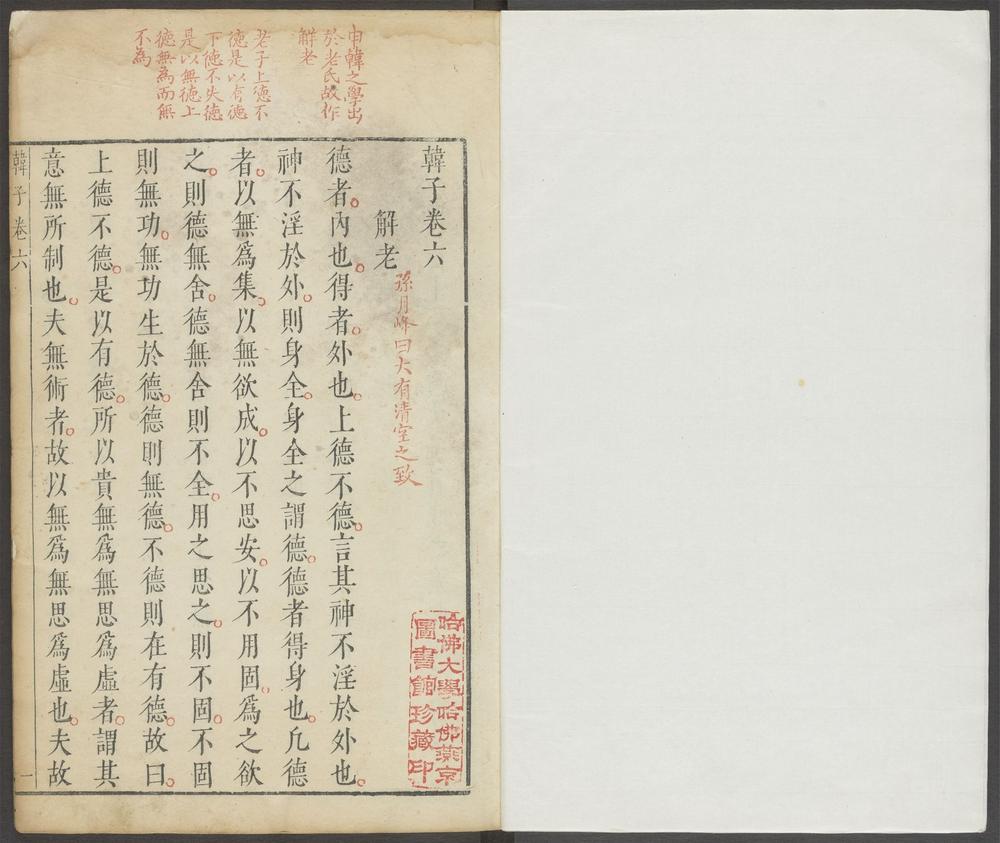 申韓之學出
於老氏故作
解老
老子上德不
德是以有德
下德不失德
是以無德上
德無為而無
不為
韓子卷六
解老
孫月峰曰大有清空之致
德者。內也。得者。外也。上德不德。言其神不淫於外也。
神不淫於外。則身全。身全之謂德。德者得身也。凢德
者。以無爲集。以無欲成。以不思安。以不用固。爲之欲
之。則德無舍。德無舍則不全。用之思之。則不固。不固
則無功。無功生於德。德則無德。不德則在有德。故曰。
上德不德。是以有德。所以貴無爲無思爲虛者。謂其
意無所制也。夫無術者。故以無爲無思爲虛也。夫故
韓子卷六
一
哈佛大學哈佛燕京
圖書館珍藏印